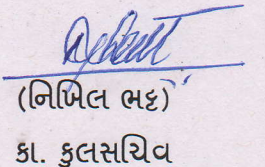 (નિખિલ ભટ્ટ)
કા. કુલસચિવ